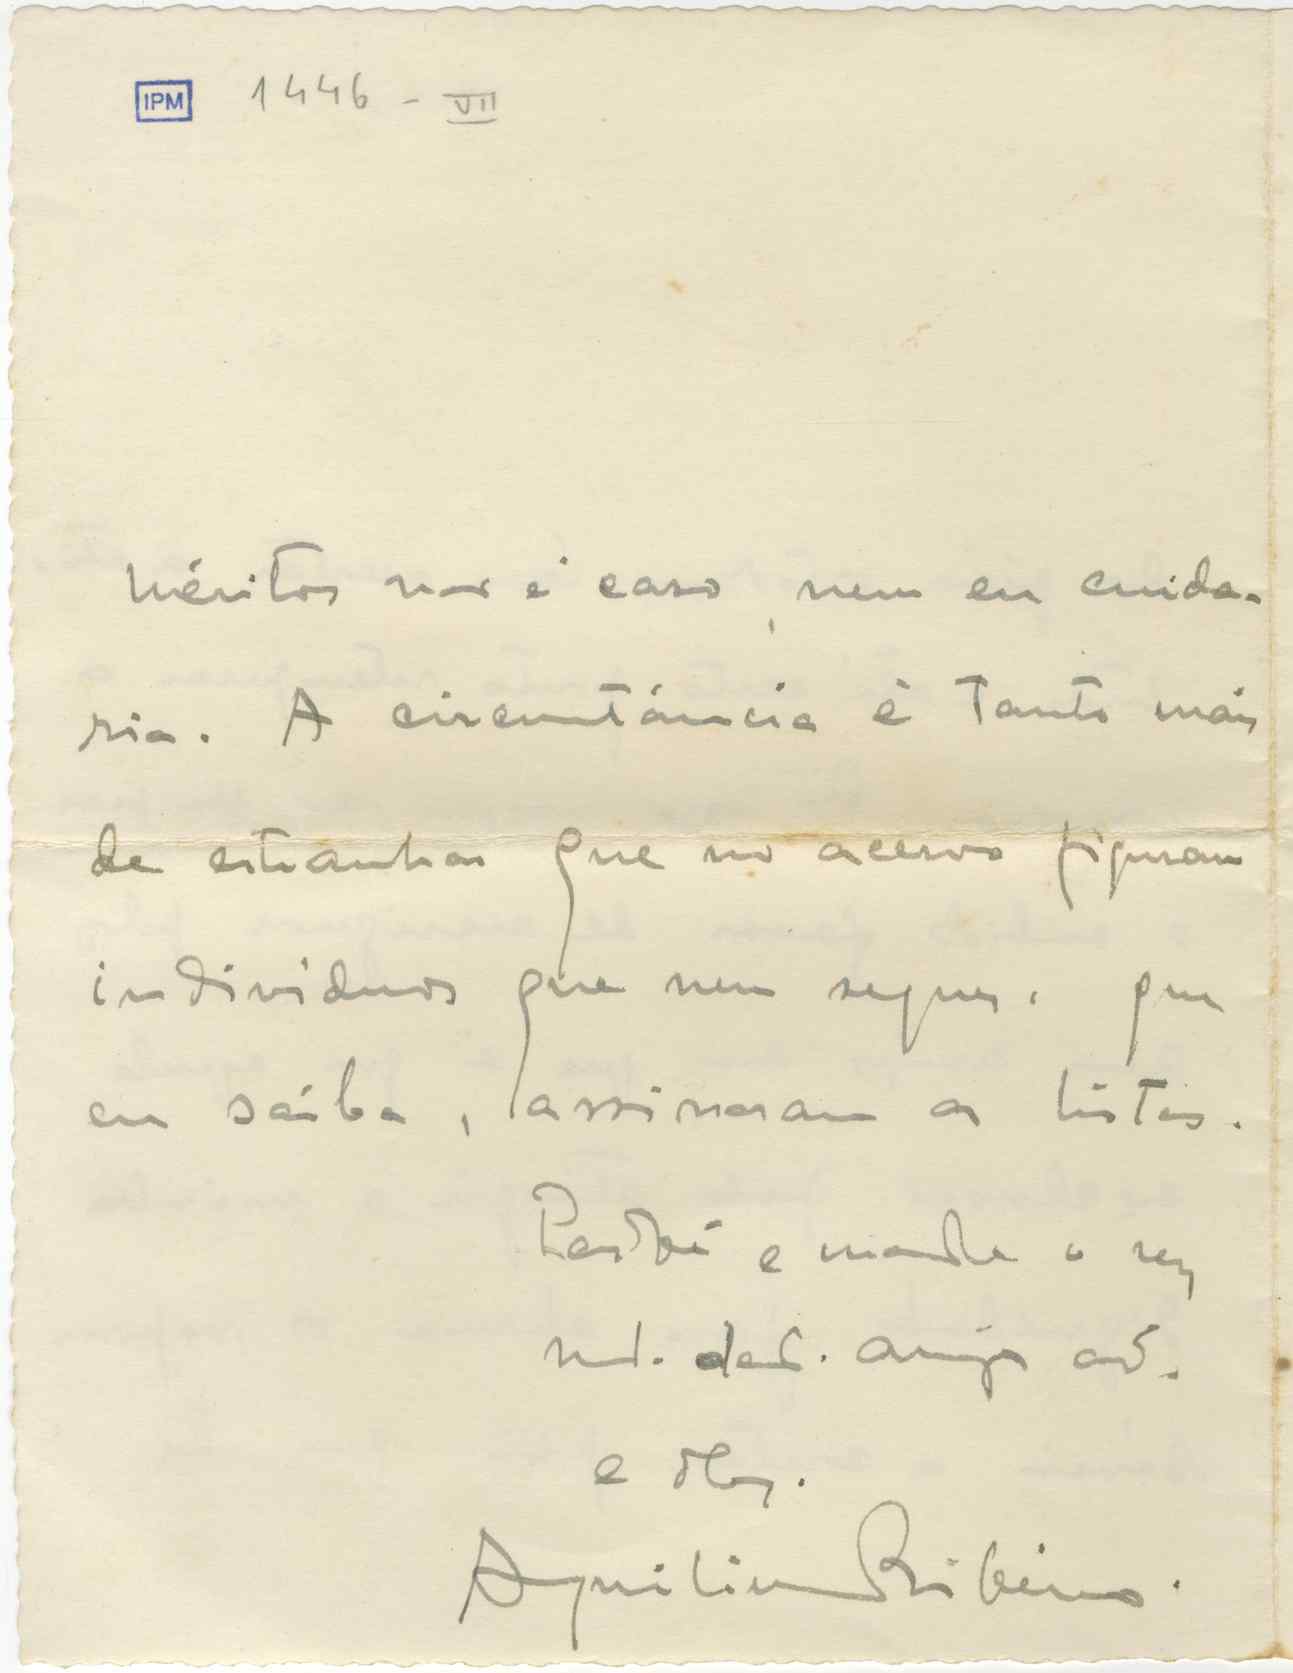 IPM 1446 - VII
méritos não é caso, nem eu cuida-
ria. A circunstância é tanto mais
de estranhar que no acervo figuram
individuos que nem sequer, que
eu saiba, assinaram as listas.
Perdoe e mande o seu
md. ded. amigo ad.
e obg.
Aquilino Ribeiro.